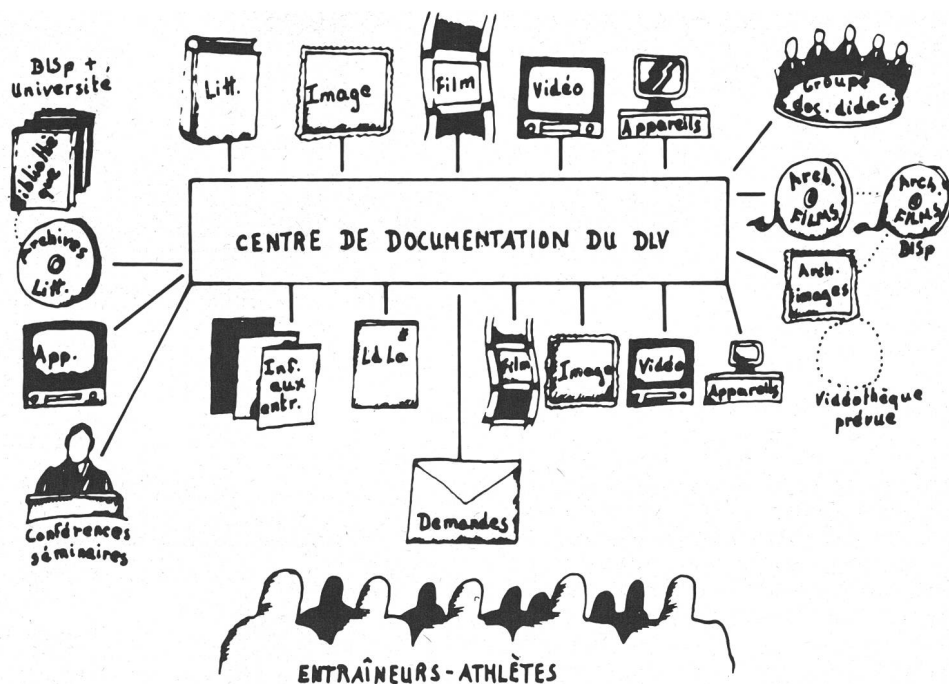 BISp +
Université
Bibliothè
que
Archives
Litt.
App.
Conférences
séminaires
Litt.
Image
Film
Vidéo
Appareils
Groupe
doc. didac.
Arch.
FILMS
Arch.
FILMS
BISp
Arch.
images
Vidéothèque
prévue
CENTRE DE DOCUMENTATION DU DLV
Inf.
aux
entr.
LdLa
Film
Image
Vidéo
Appareils
Demandes
ENTRAÎNEURS-ATHLÈTES